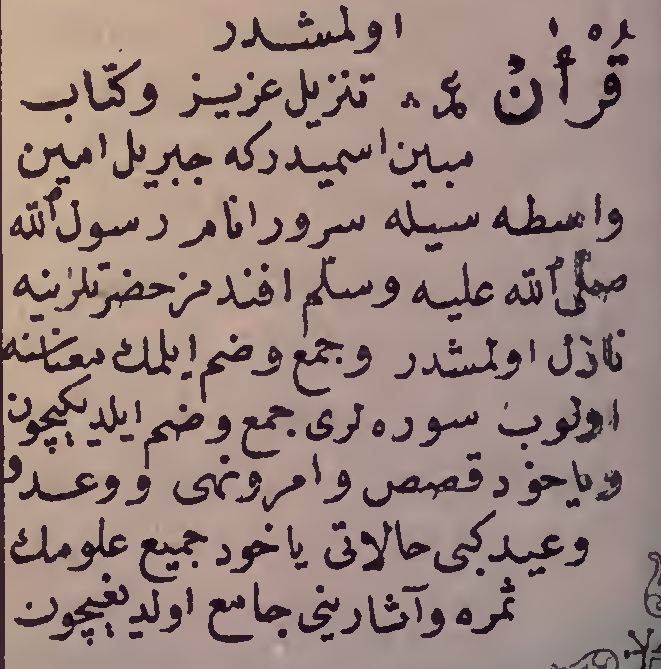 اولمشدر
قُرْأٰنْ ع م تنزيل عزيز وكتاب
مبين اسميدركه جبريل امين
واسطه سيله سرور انام رسول الله
صلى الله عليه وسلم افندمز حضرتلرينه
نازل اولمشدر وجمع وضم ايلمك معناسنه
اولوب سوره لرى جمع وضم ايلديكيچون
وياخود قصص وامر ونهى و وعد و
وعيد كبى حالاتى ياخود جميع علومك
ثمره وآثارينى جامع اولديغيچون